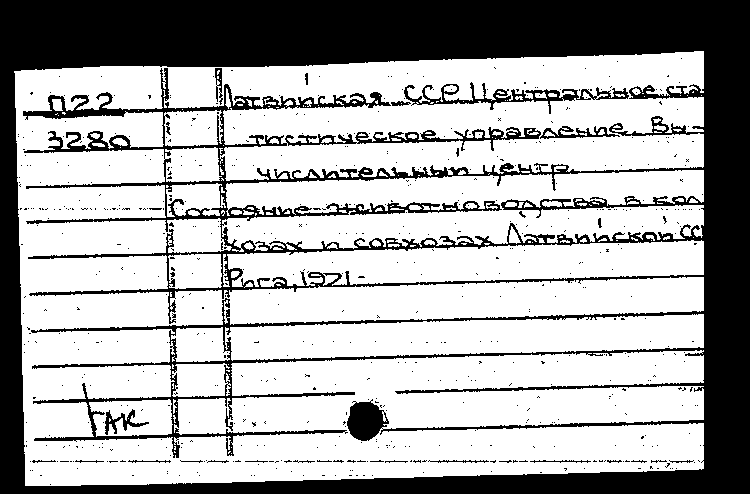 П22 Латвийская ССР. Центральное ста-
3280 тистическое управление. Вы-
числительный центр.
Состояние животноводства в кол
хозах и совхозах Латвийской ССР
Рига, 1971-
ГАК